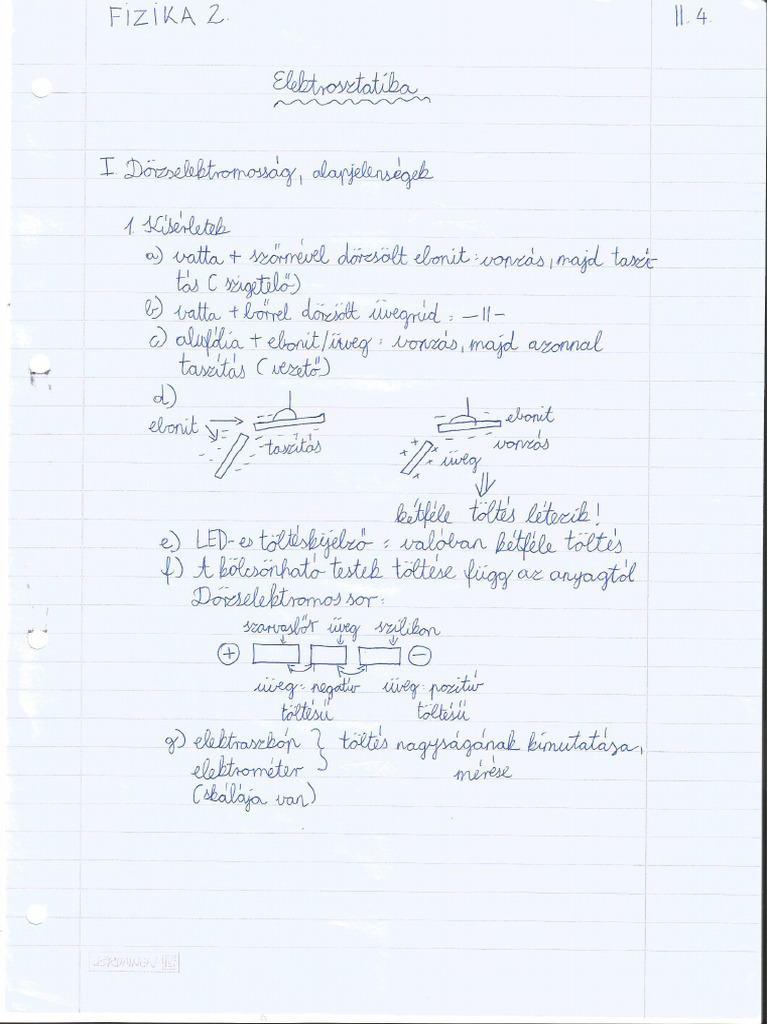 FIZIKA 2.
II. 4.
Elektrosztatika
I. Dörzselektromosság, alapjelenségek
1. Kísérletek
a) vatta + szőrmével dörzsölt ebonit: vonzás, majd taszí-
tás (szigetelő)
b) vatta + bőrrel dörzsölt üvegrúd: -II-
c) alufólia + ebonit/üveg: vonzás, majd azonnal
taszítás (vezető)
d)
ebonit
taszítás
ebonit
vonzás
üveg
kétféle töltés létezik!
e) LED-es töltéskijelző: valóban kétféle töltés
f) A kölcsönható testek töltése függ az anyagtól
Dörzselektromos sor:
szarvasbőr üveg szilikon
+ −
üveg: negatív üveg: pozitív
töltésű töltésű
g) elektroszkóp } töltés nagyságának kimutatása,
elektrométer mérése
(skálája van)